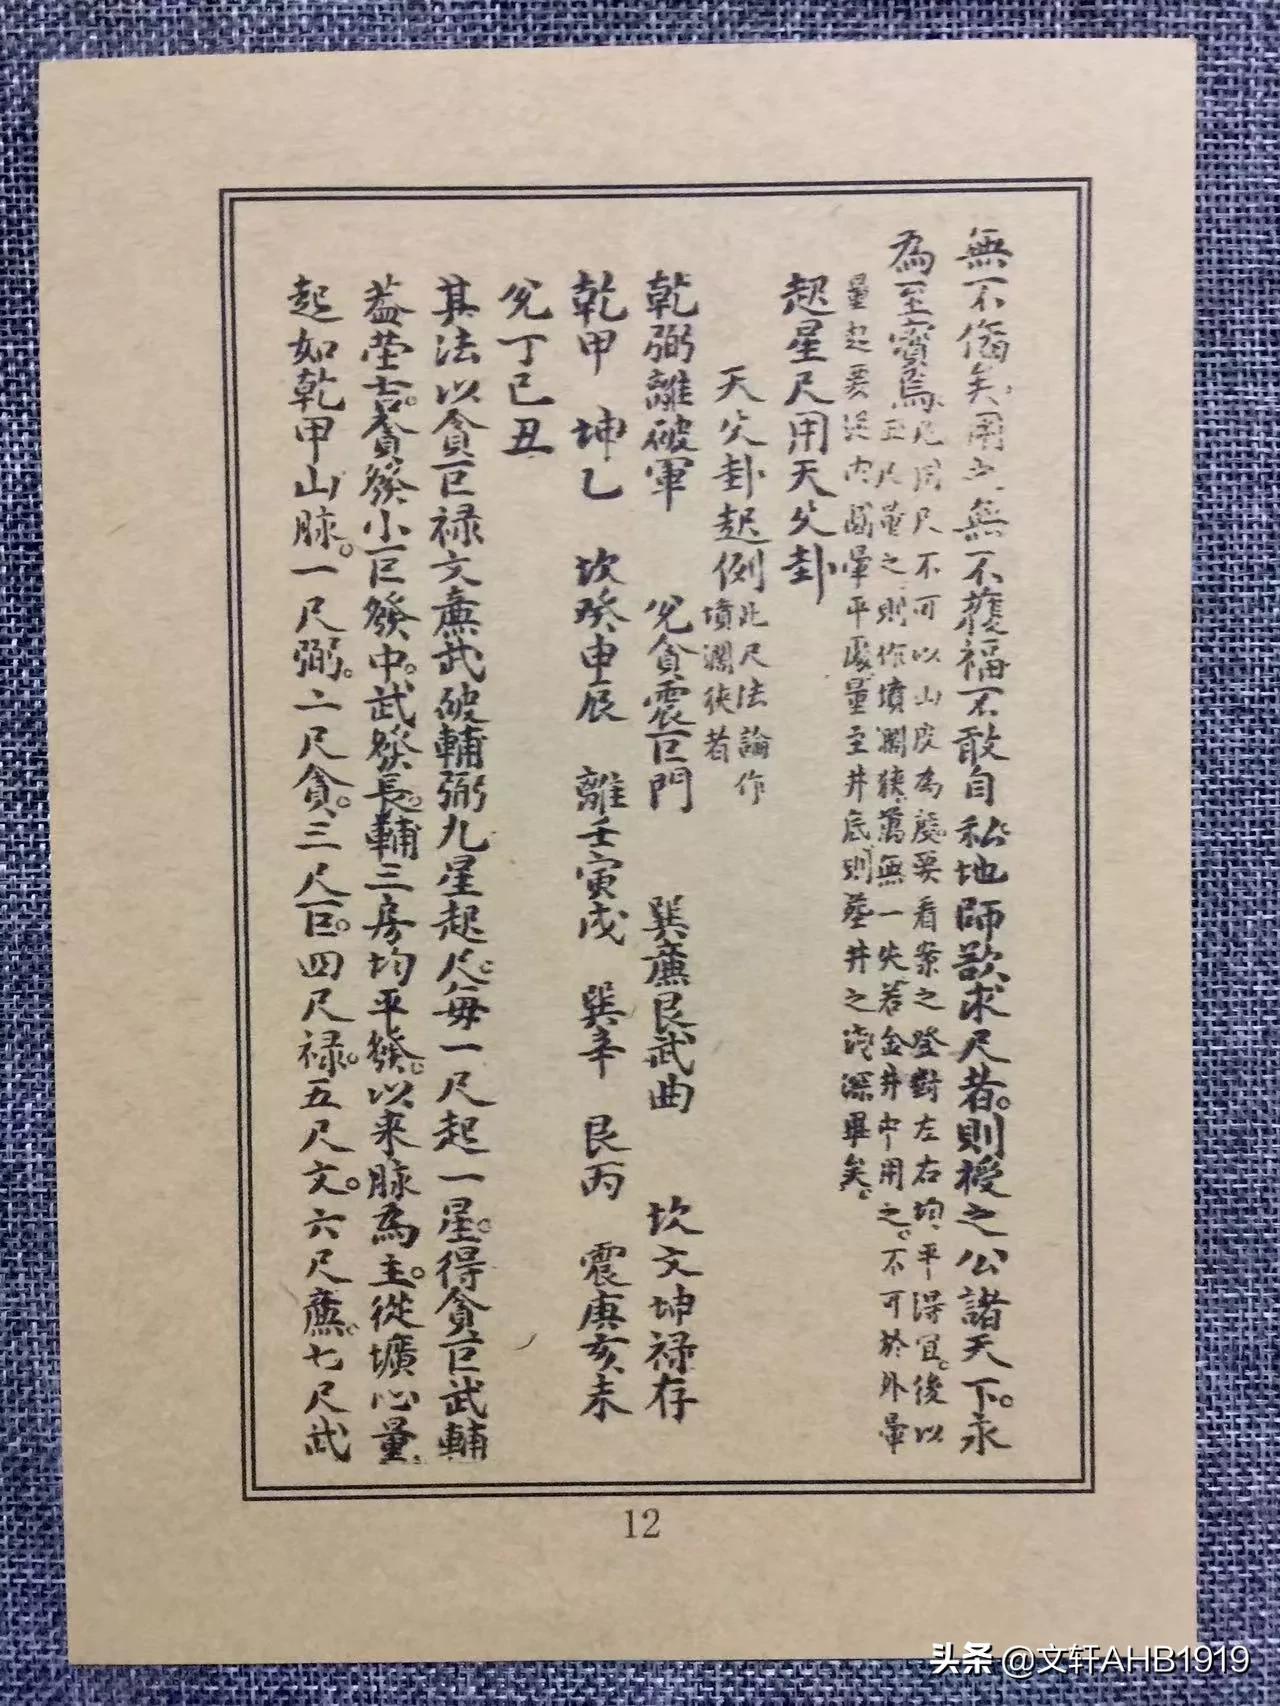 無不俻矣。用之無不獲福不敢自私地師欲求尺者。則授之公諸天下。永
為至寳焉。
凡用尺不可以山皮為慿要看案之登對左右均平得宜。後以
五尺量之則作墳濶狹萬無一失。若金井中用之。不可於外暈
量起要從内圓暈平處量至井底則塟井之浅深畢矣。
起星尺用天父卦
天父卦起例
此尺法論作
墳濶狹者
乾弼離破軍 兊貪震巨門 巽廉艮武曲 坎文坤禄存
乾甲 坤乙 坎癸申辰 離壬寅戌 巽辛 艮丙 震庚亥未
兊丁巳丑
其法以貪巨禄文廉武破輔弼九星起尺。每一尺起一星。得貪巨武輔
葢塋吉。貪發小巨發中。武發長。輔三房均平發。以来脉為主。從壙心量
起如乾甲山脉。一尺弼。二尺貪。三尺巨。四尺禄。五尺文。六尺廉。七尺武
12
头条 @文轩AHB1919